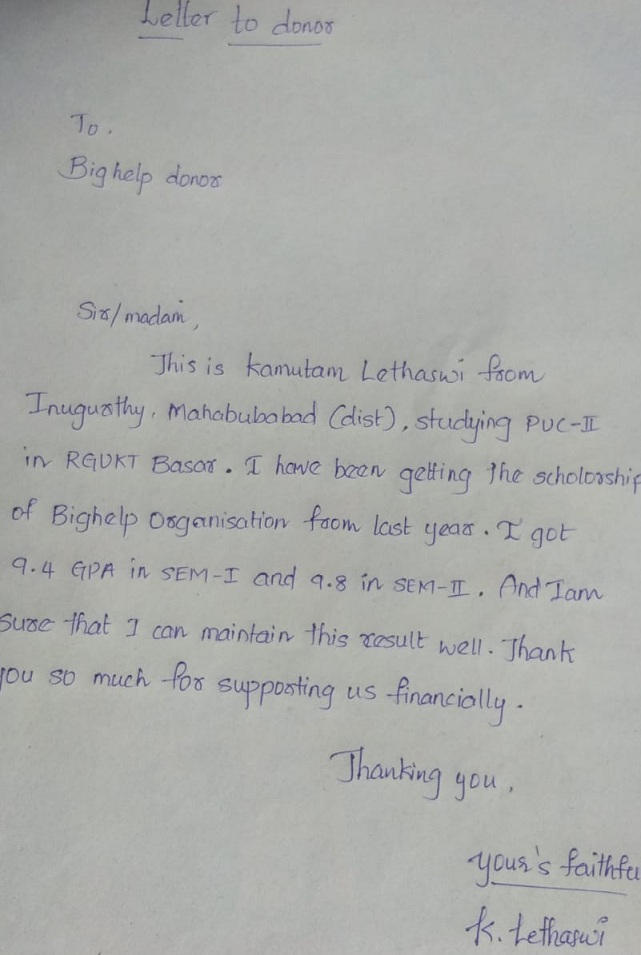 Letter to donor
To.
Bighelp donor
Sir/madam,
This is kamutam Lethaswi from
Inugurthy, Mahabubabad (dist), studying PUC-II
in RGUKT Basar. I have been getting the scholorship
of Bighelp Organisation from last year. I got
9.4 GPA in SEM-I and 9.8 in SEM-II. And I am
sure that I can maintain this result well. Thank
you so much for supporting us financially.
Thanking you,
your's faithfu
K. Lethaswi